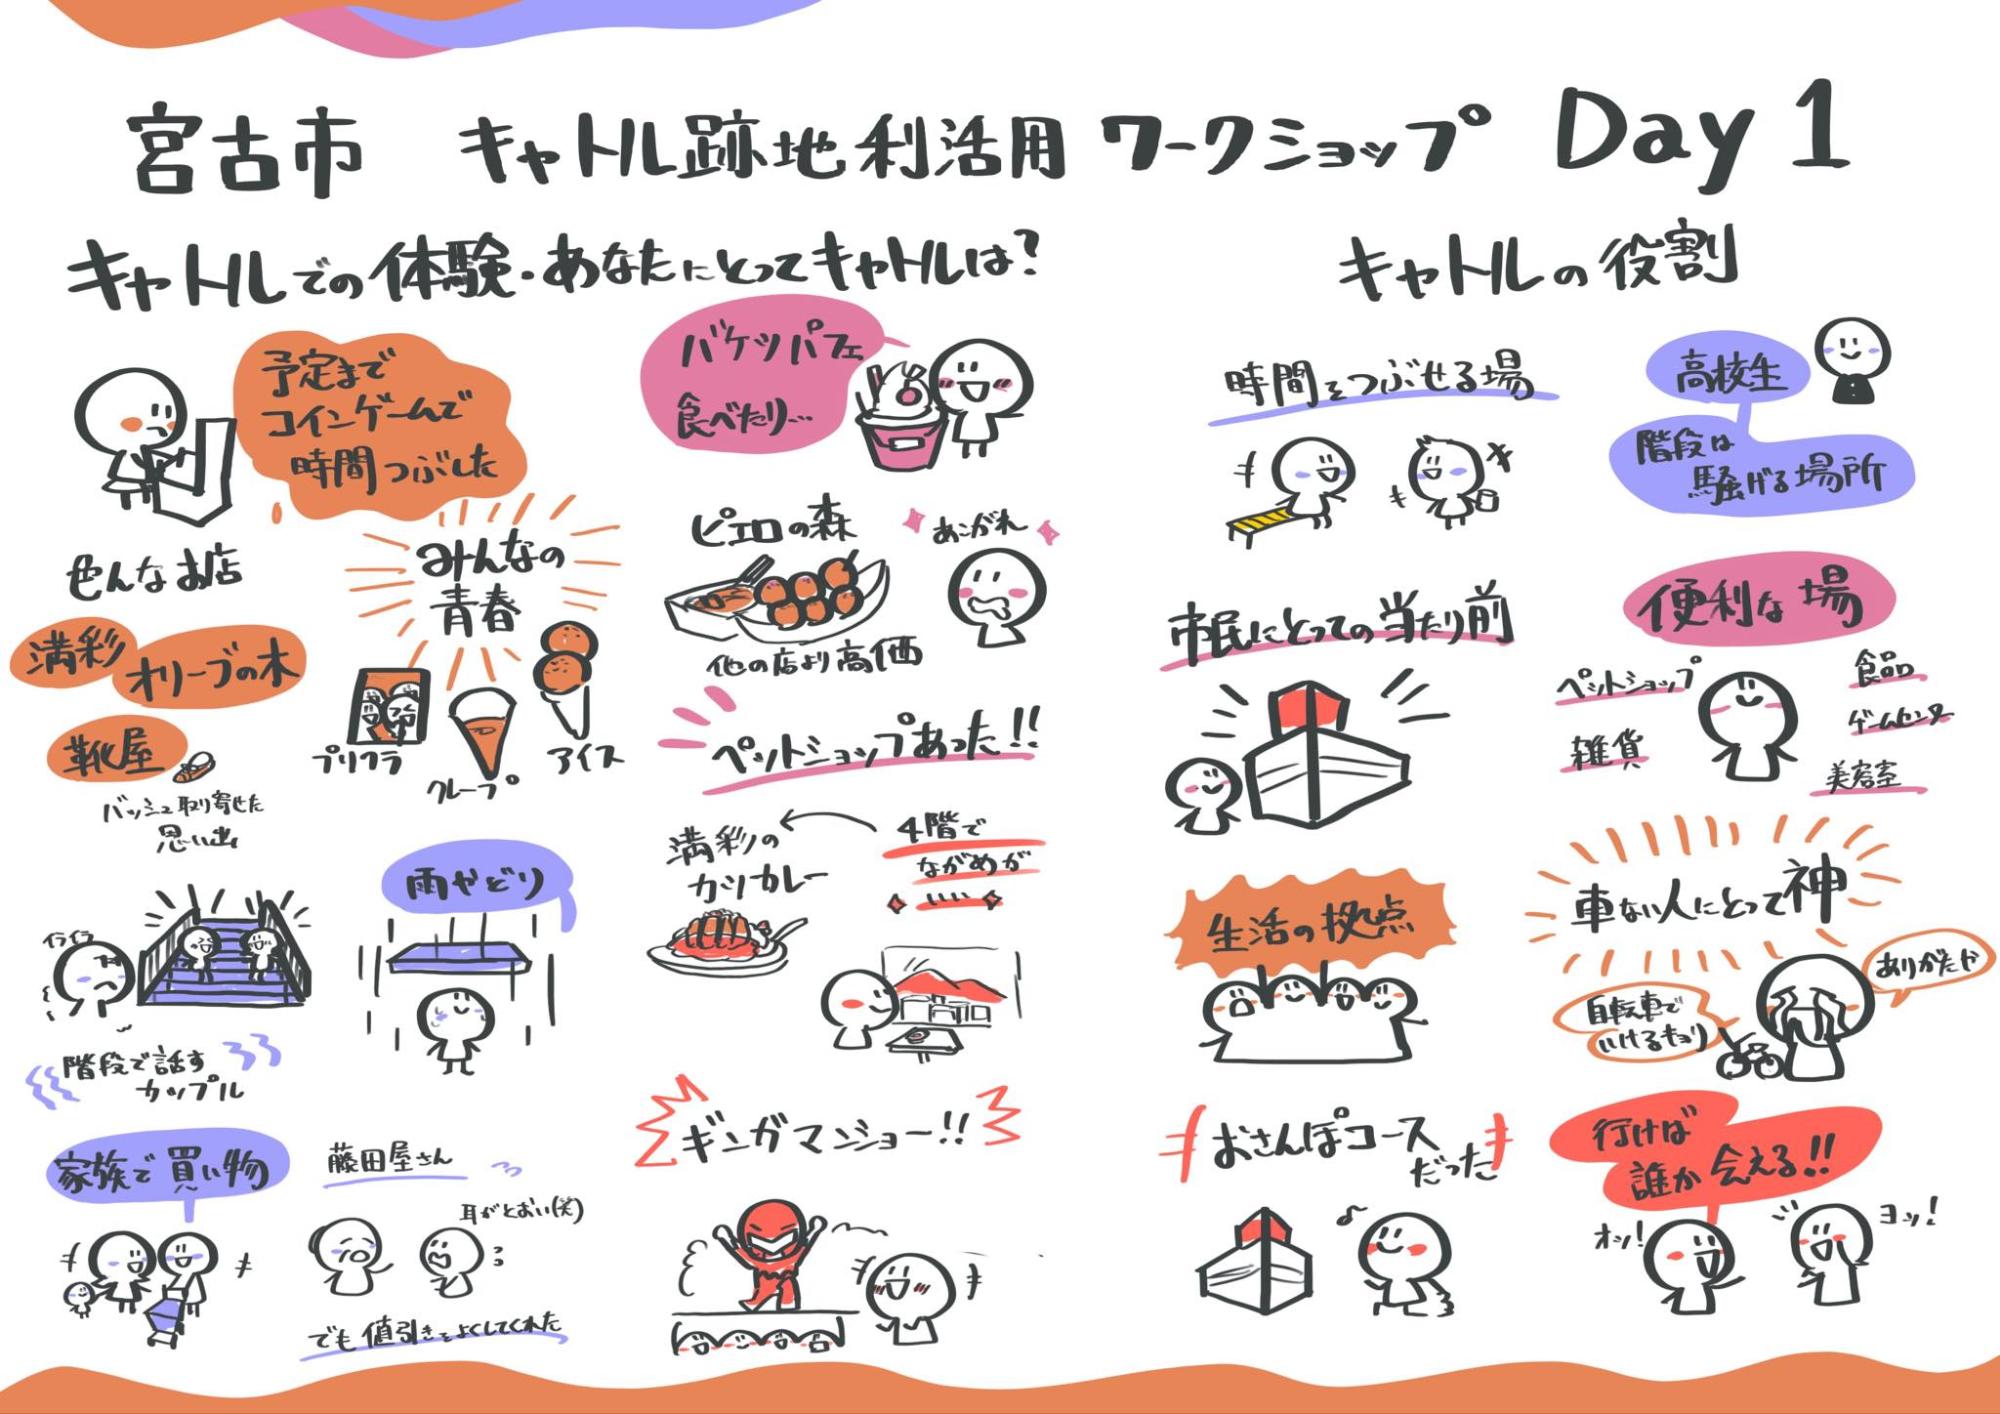 宮古市 キャトル跡地利活用 ワークショップ Day 1
キャトルでの体験・あなたにとってキャトルは?
予定まで
コインゲームで
時間つぶした
色んなお店
満彩
オリーブの木
靴屋
バッシュ取り寄せた
思い出
みんなの
青春
プリクラ
クレープ
アイス
イライラ
階段で話す
カップル
雨やどり
家族で買い物
藤田屋さん
耳がとおい(笑)
でも値引きをよくしてくれた
バケツパフェ
食べたり…
ピエロの森
あこがれ
他の店より高価
ペットショップあった!!
満彩の
カツカレー
4階で
ながめが
いい
ギンガマンショー!!
キャトルの役割
時間をつぶせる場
高校生
階段は
騒げる場所
市民にとっての当たり前
便利な場
ペットショップ
食品
ゲームセンター
雑貨
美容室
生活の拠点
車ない人にとって神
ありがたや
自転車で
いけるキョリ
おさんぽコース
だった
行けば
誰か会える!!
オッ!
ヨッ!